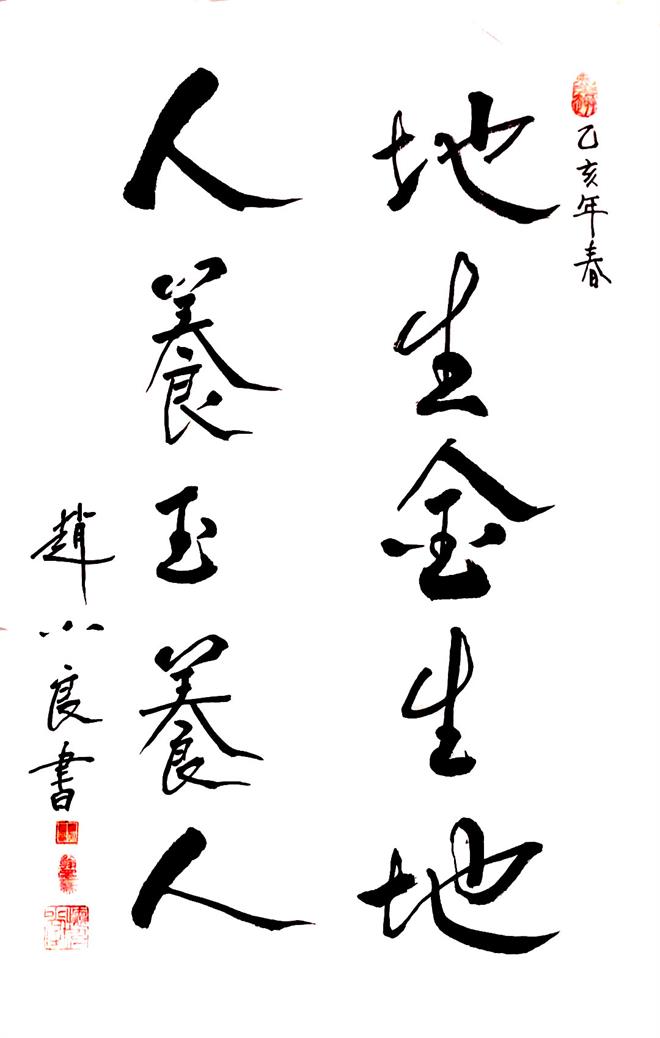 乙亥年春
地生金生地
人養玉養人
趙小度書